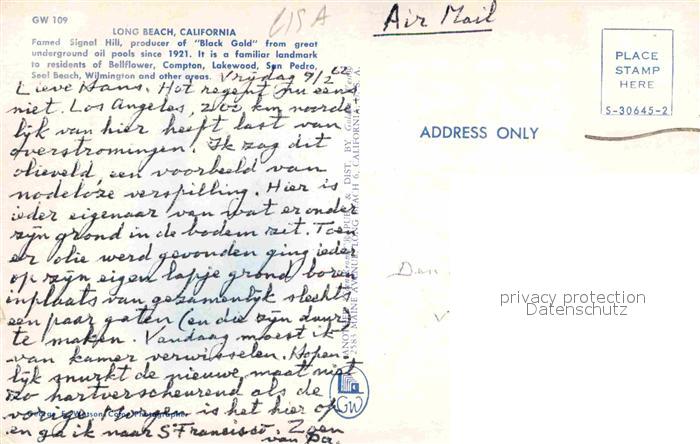 GW 109
LONG BEACH, CALIFORNIA
Famed Signal Hill, producer of "Black Gold" from great
underground oil pools since 1921. It is a familiar landmark
to residents of Bellflower, Compton, Lakewood, San Pedro,
Seal Beach, Wilmington and other areas.
USA
Air Mail
PLACE
STAMP
HERE
S-30645-2
ADDRESS ONLY
Vrijdag 9/2 62
Lieve Hans. Het regent nu eens
niet. Los Angeles, 200 km noorde-
lijk van hier heeft last van
overstromingen. Ik zag dit
olieveld, een voorbeeld van
nodeloze verspilling. Hier is
ieder eigenaar van wat er onder
zijn grond in de bodem zit. Toen
er olie werd gevonden ging ieder
op zijn eigen lapje grond boren
inplaats van gezamenlijk slechts
een paar gaten (en die zijn duur)
te maken. Vandaag moest ik
van kamer verwisselen. Hopen-
lijk snurkt de nieuwe maat niet
zo hartverscheurend als de
vorige. Morgen is het hier op
en ga ik naar S. Francisco. Zoen
van Pa.
2583 MAINE AVENUE, LONG BEACH 6, CALIFORNIA
GW
Den
privacy protection
Datenschutz